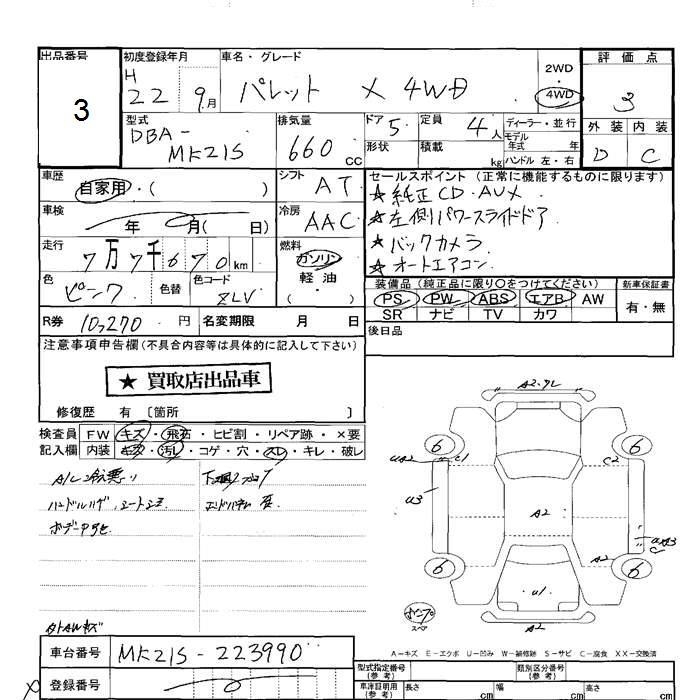 出品番号 初度登録年月 車名・グレード 2WD ・ 4WD 評価点
3 H 22 9月 パレット X 4WD 3
型式 DBA- MK21S 排気量 660 cc ドア 5 定員 4人 ディーラー・並行 外装 内装
形状 積載 kg モデル年式 年式 ハンドル 左・右 D C
車歴 自家用・( ) シフト AT セールスポイント (正常に機能するものに限ります)
★純正CD・AUX
車検 年 月( 日) 冷房 AAC ★左側パワースライドドア
★バックカメラ
走行 7万7千670km 燃料 ガソリン 軽油・( ) ★オートエアコン
色 ピンク 色替 色コード ZLV 装備品 (純正品に限り○をつけてください) 新車保証書
PS PW ABS エアB AW 有・無
R券 10,270円 名変期限 月 日 SR ナビ TV カワ
後日品
注意事項申告欄(不具合内容等は具体的に記入して下さい)
★ 買取店出品車
修復歴 有 〔箇所 〕
検査員 FW キズ・飛石・ヒビ割・リペア跡・×要
記入欄 内装 キズ・汚レ・コゲ・穴・スレ・キレ・破レ
A/C冷悪い
A2
6 6
UA2 C1 C2
U3
A2
A2
C
6 6
U1
A2
スペア
A-キズ E-エクボ U-凹み W-補修跡 S-サビ C-腐食 XX-交換済
車台番号 MK21S-223990 型式指定番号(参考) 類別区分番号(参考)
登録番号 車庫証明用(参考) 長さ cm 幅 cm 高さ cm